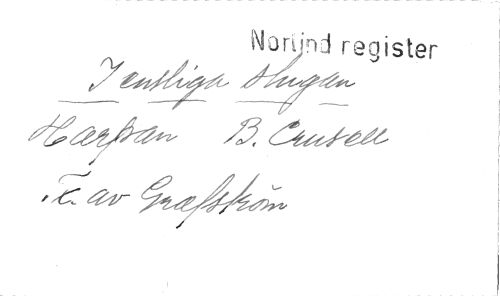 Norlind register
I enstliga stugan
Harpan B. Crusell
T. av Grafström